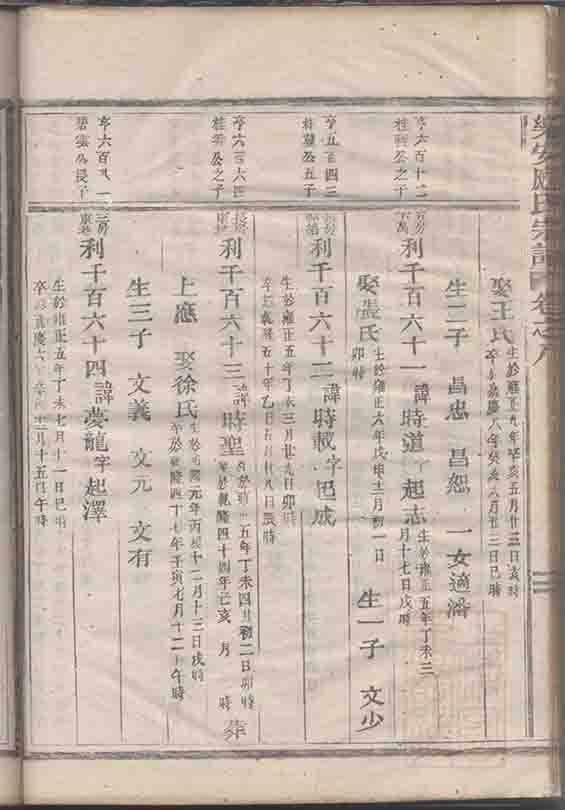 樂安應氏宗譜 卷之八
亨六百十二
桂公之子
亨五百四三
桂公五子
亨六百六四
桂公之子
亨六百
碧雲公長子
娶王氏
生於雍正九年辛亥五月廿三日亥時
卒嘉慶八年癸亥六月廿三日巳時
生二子 昌忠 昌恕 一女適潘
利千百六十一 諱時道 字起志
生於雍正五年丁未三
月十七日戌時
娶張氏
生於雍正六年戊申十二月初一日
卯時
生一子 文少
利千百六十二 諱時載 字起成
生於雍正五年丁未三月廿九日卯時
卒乾隆五十年乙巳五月廿八日辰時
利千百六十三 諱時聖
五年丁未四月初二日卯時
卒於乾隆四十四年己亥 月 時 葬
上應 娶徐氏
生於乾隆元年丙辰十二月十三日戌時
卒於乾隆四十七年壬寅七月十二 午時
生三子 文義 文元 文有
利千百六十四 諱夢龍 字起澤
生於雍正五年丁未七月十一日巳時
卒嘉慶六 三月十五日午時